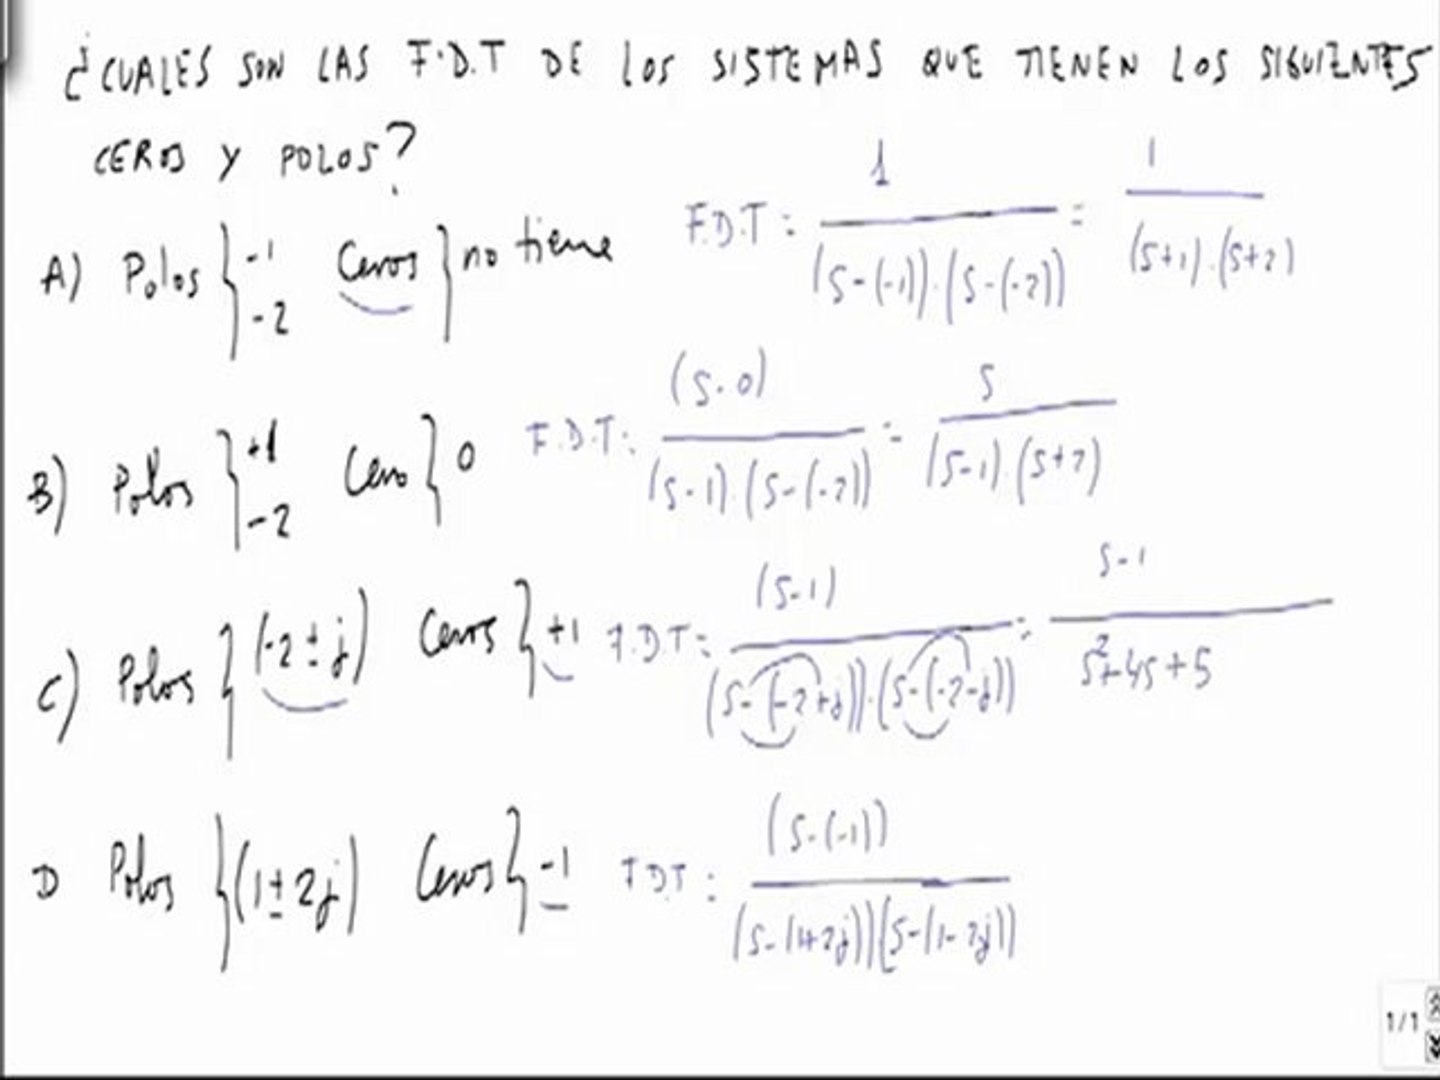 ¿CUALES SON LAS F.D.T DE LOS SISTEMAS QUE TIENEN LOS SIGUIENTES
CEROS Y POLOS?
A) Polos } -1 -2 Ceros } no tiene F.D.T = 1 / (s-(-1))·(s-(-2)) = 1 / (s+1)·(s+2)
B) Polos } +1 -2 Cero { 0 F.D.T: (s-0) / (s-1)·(s-(-2)) = s / (s-1)·(s+2)
C) Polos } (-2±j) Ceros } +1 F.D.T = (s-1) / (s-(-2+j))·(s-(-2-j)) = s-1 / s²+4s+5
D Polos } (1±2j) Ceros } -1 F.D.T = (s-(-1)) / (s-(1+2j))(s-(1-2j))
1/1